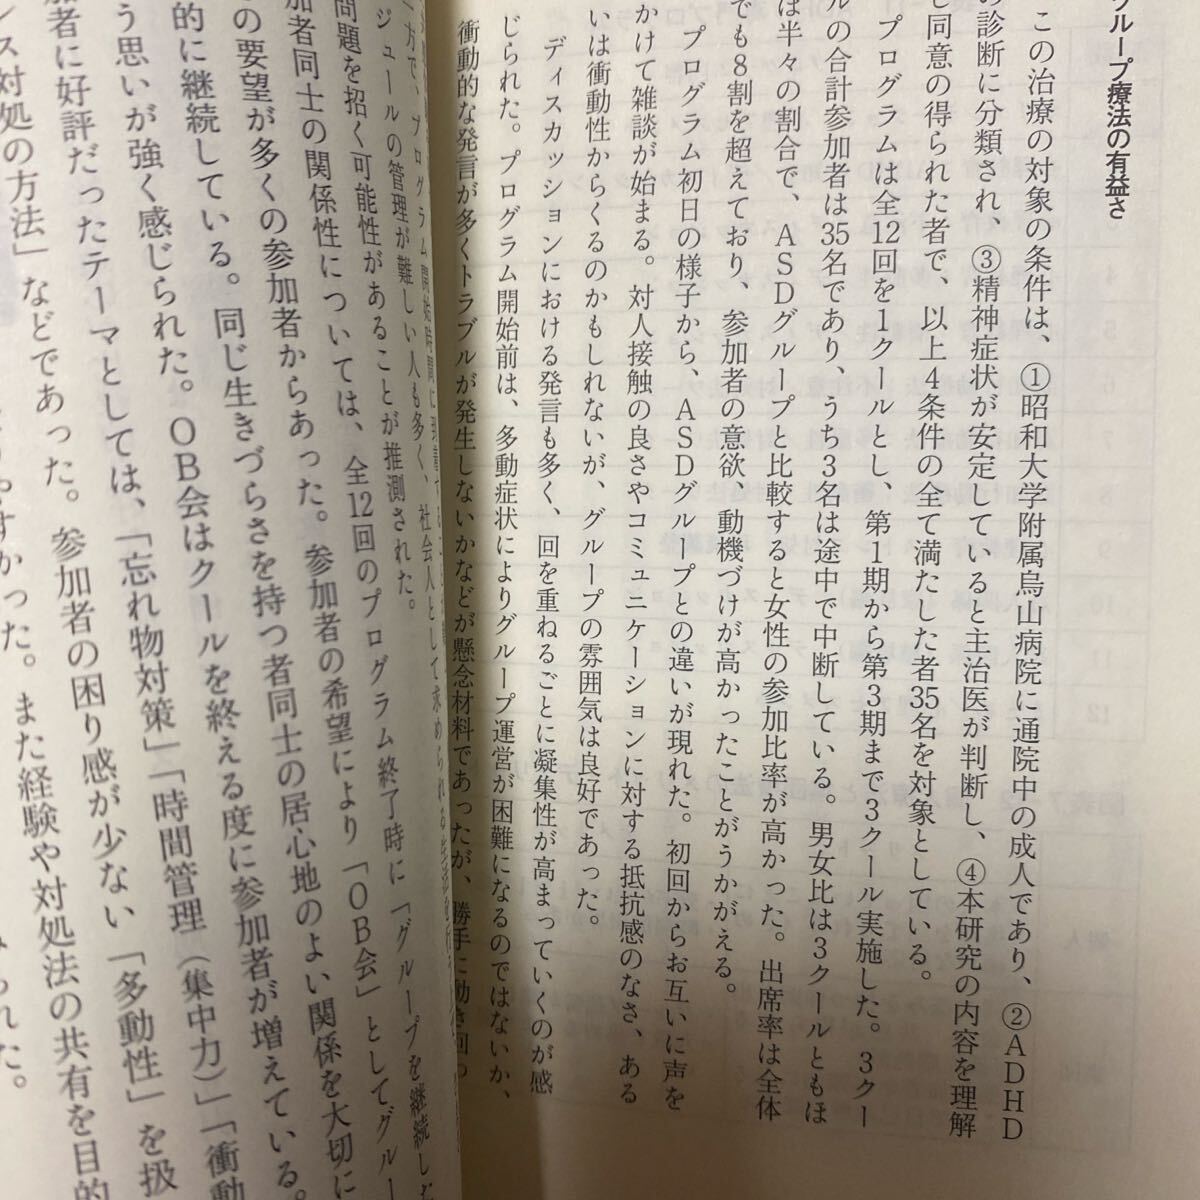 ループ療法の有益さ
この治療の対象の条件は、①昭和大学附属烏山病院に通院中の成人であり、②ADHD
の診断に分類され、③精神症状が安定していると主治医が判断し、④本研究の内容を理解
し同意の得られた者で、以上4条件の全て満たした者35名を対象としている。
プログラムは全12回を1クールとし、第1期から第3期まで3クール実施した。3クー
ルの合計参加者は35名であり、うち3名は途中で中断している。男女比は3クールともほ
は半々の割合で、ASDグループと比較すると女性の参加比率が高かった。出席率は全体
でも8割を超えており、参加者の意欲、動機づけが高かったことがうかがえる。
プログラム初日の様子から、ASDグループとの違いが現れた。初回からお互いに声を
かけて雑談が始まる。対人接触の良さやコミュニケーションに対する抵抗感のなさ、ある
いは衝動性からくるのかもしれないが、グループの雰囲気は良好であった。
ディスカッションにおける発言も多く、回を重ねるごとに凝集性が高まっていくのが感
じられた。プログラム開始前は、多動症状によりグループ運営が困難になるのではないか、
衝動的な発言が多くトラブルが発生しないかなどが懸念材料であったが、勝手に動き回っ
一方で、プログラム開始時間に
ジュールの管理が難しい人も多く、社会人として求められる
問題を招く可能性があることが推測された。
加者同士の関係性については、全12回のプログラム終了時に「グループを継続した
の要望が多くの参加者からあった。参加者の希望により「OB会」としてグルー
的に継続している。同じ生きづらさを持つ者同士の居心地のよい関係を大切に
う思いが強く感じられた。OB会はクールを終える度に参加者が増えている。
者に好評だったテーマとしては、「忘れ物対策」「時間管理（集中力）」「衝動
ンス対処の方法」などであった。参加者の困り感が少ない「多動性」を扱
やすかった。また経験や対処法の共有を目的
られた。